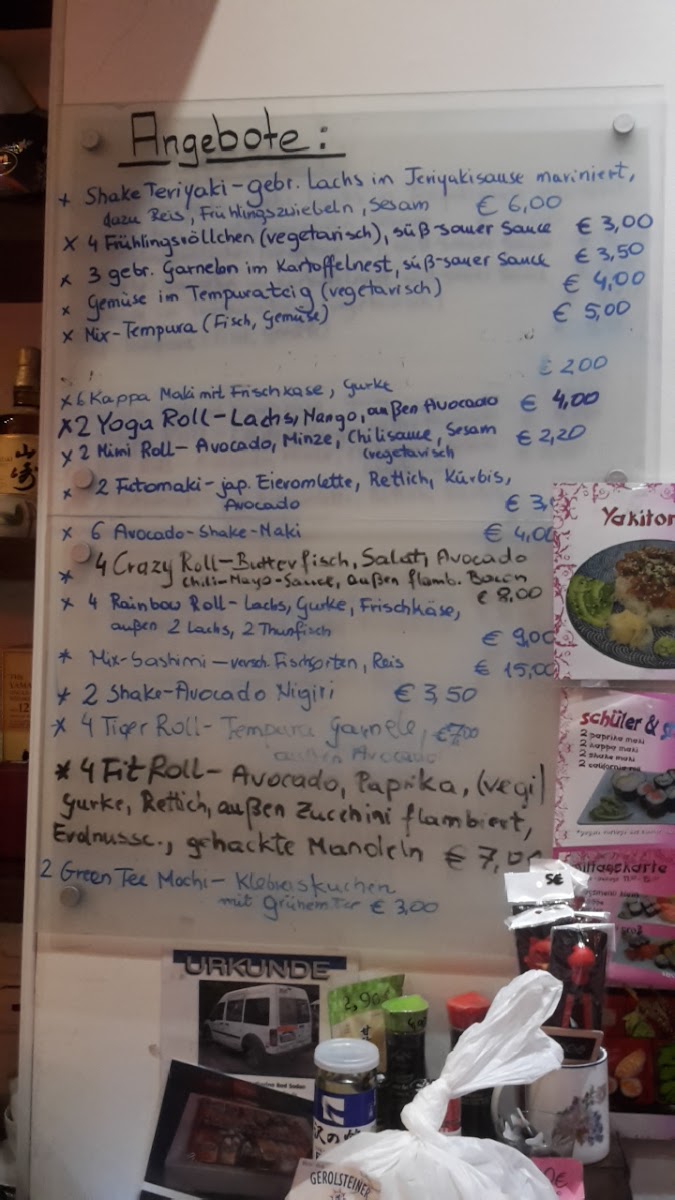 Angebote:
x Shake Teriyaki - gebr. Lachs in Teriyakisauce mariniert,
dazu Reis, Frühlingszwiebeln, Sesam € 6,00
x 4 Frühlingsröllchen (vegetarisch), süß-sauer Sauce € 3,00
x 3 gebr. Garnelen im Kartoffelnest, süß-sauer Sauce € 3,50
x Gemüse im Tempurateig (vegetarisch) € 4,00
x Mix-Tempura (Fisch, Gemüse) € 5,00
x 6 Kappa Maki mit Frischkäse, Gurke € 2,00
x 2 Yoga Roll - Lachs, Mango, außen Avocado € 4,00
x 2 Mimi Roll - Avocado, Minze, Chilisauce, Sesam € 2,20
(vegetarisch
x 2 Futomaki - jap. Eieromlette, Retlich, Kürbis,
Avocado € 3,
x 6 Avocado-Shake-Maki € 4,00
x 4 Crazy Roll - Butterfisch, Salat, Avocado
Chili-Mayo-Sauce, außen flamb. Bacon € 8,00
x 4 Rainbow Roll - Lachs, Gurke, Frischkäse,
außen 2 Lachs, 2 Thunfisch € 9,00
* Mix-Sashimi - versch. Fischsorten, Reis € 15,00
* 2 Shake-Avocado Nigiri € 3,50
* 4 Tiger Roll - Tempura Garnele, € 7,00
außen Avocado
* 4 Fit Roll - Avocado, Paprika, (vegi)
Gurke, Rettich, außen Zucchini flambiert,
Erdnusss., gehackte Mandeln € 7,00
2 Green Tee Mochi - Klebreiskuchen
mit grünem Tee € 3,00
Yakitor
schüler &
2 paprika maki
2 kappa maki
2 shake maki
2 california
ittagskarte
5€
URKUNDE
2,90
GEROLSTEINER